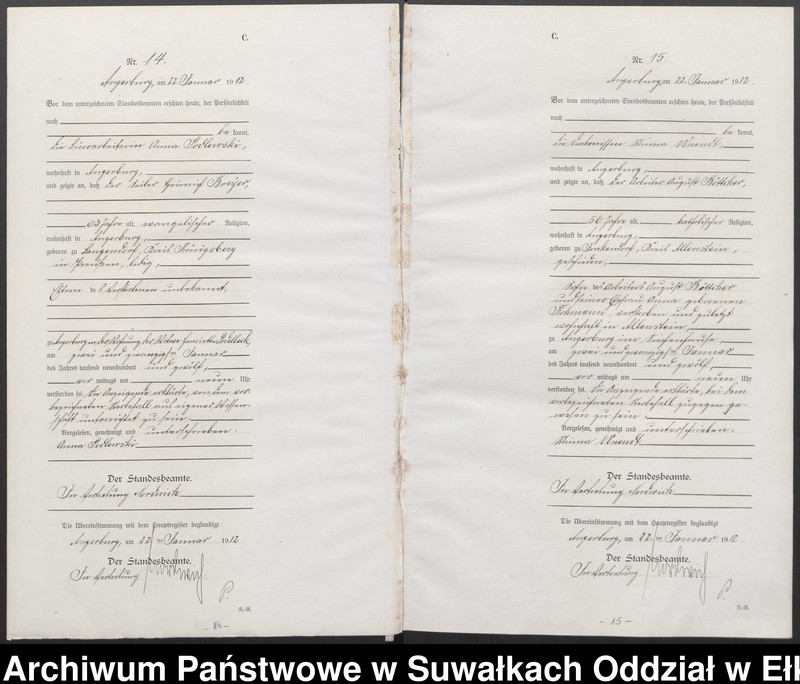 C.
Nr. 14.
Angerburg, am 22. Januar 1912.
Vor dem unterzeichneten Standesbeamten erschien heute, der Persönlichkeit
nach
be kannt,
die Anna Podlewski,
wohnhaft in Angerburg,
und zeigte an, daß der Heinrich
63 Jahre alt, evangelischer Religion,
wohnhaft in Angerburg,
geboren zu Langendorf, Kreis Königsberg
in Preußen, ledig,
Eltern des Verstorbenen unbekannt,
zu Angerburg in der Wohnung der Witwe Henriette
am zwei und zwanzigsten Januar
des Jahres tausend neunhundert und zwölf,
vor mittags um neun Uhr
verstorben sei. Die Anzeigende erklärte, von dem vor
bezeichneten Sterbefall aus eigener Wissen
schaft unterrichtet zu sein.
Vorgelesen, genehmigt und unterschrieben.
Anna Podlewski
Der Standesbeamte.
In Vertretung
Die Übereinstimmung mit dem Hauptregister beglaubigt
Angerburg, am 22. ten Januar 1912.
Der Standesbeamte.
In Vertretung
P.
K.-R.
- 14 -
C.
Nr. 15.
Angerburg, am 22. Januar 1912.
Vor dem unterzeichneten Standesbeamten erschien heute, der Persönlichkeit
nach
be kannt,
die Diakonissin Minna Wendt
wohnhaft in Angerburg,
und zeigte an, daß der Arbeiter August Böttcher,
56 Jahre alt, katholischer Religion,
wohnhaft in Angerburg,
geboren zu Jonkendorf, Kreis Allenstein,
geschieden,
Sohn des Arbeiters August Böttcher
und seiner Ehefrau Anna geborenen
verstorben und zuletzt
wohnhaft in Allenstein,
zu Angerburg im Siechenhause,
am zwei und zwanzigsten Januar
des Jahres tausend neunhundert und zwölf,
vor mittags um neun Uhr
verstorben sei. Die Anzeigende erklärte, bei dem
vorbezeichneten Sterbefall zugegen ge-
wesen zu sein.
Vorgelesen, genehmigt und unterschrieben.
Minna Wendt
Der Standesbeamte.
In Vertretung
Die Übereinstimmung mit dem Hauptregister beglaubigt
Angerburg, am 22. ten Januar 1912.
Der Standesbeamte.
In Vertretung
P.
K.-R.
- 15 -
Archiwum Państwowe w Suwałkach Oddział w Eł